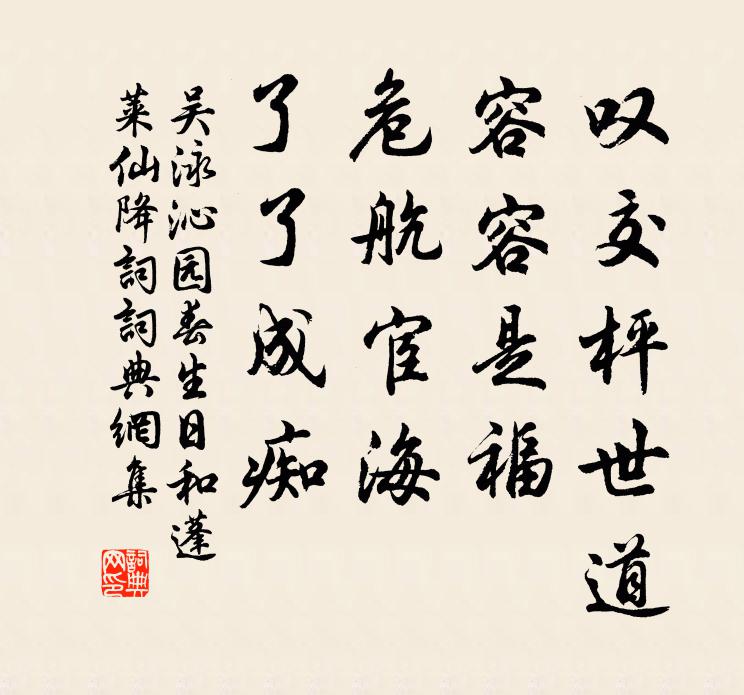 叹交枰世道
容容是福
危航宦海
了了成痴
吴泳沁园春生日和蓬
莱仙降词詞典網集
詞典
网印